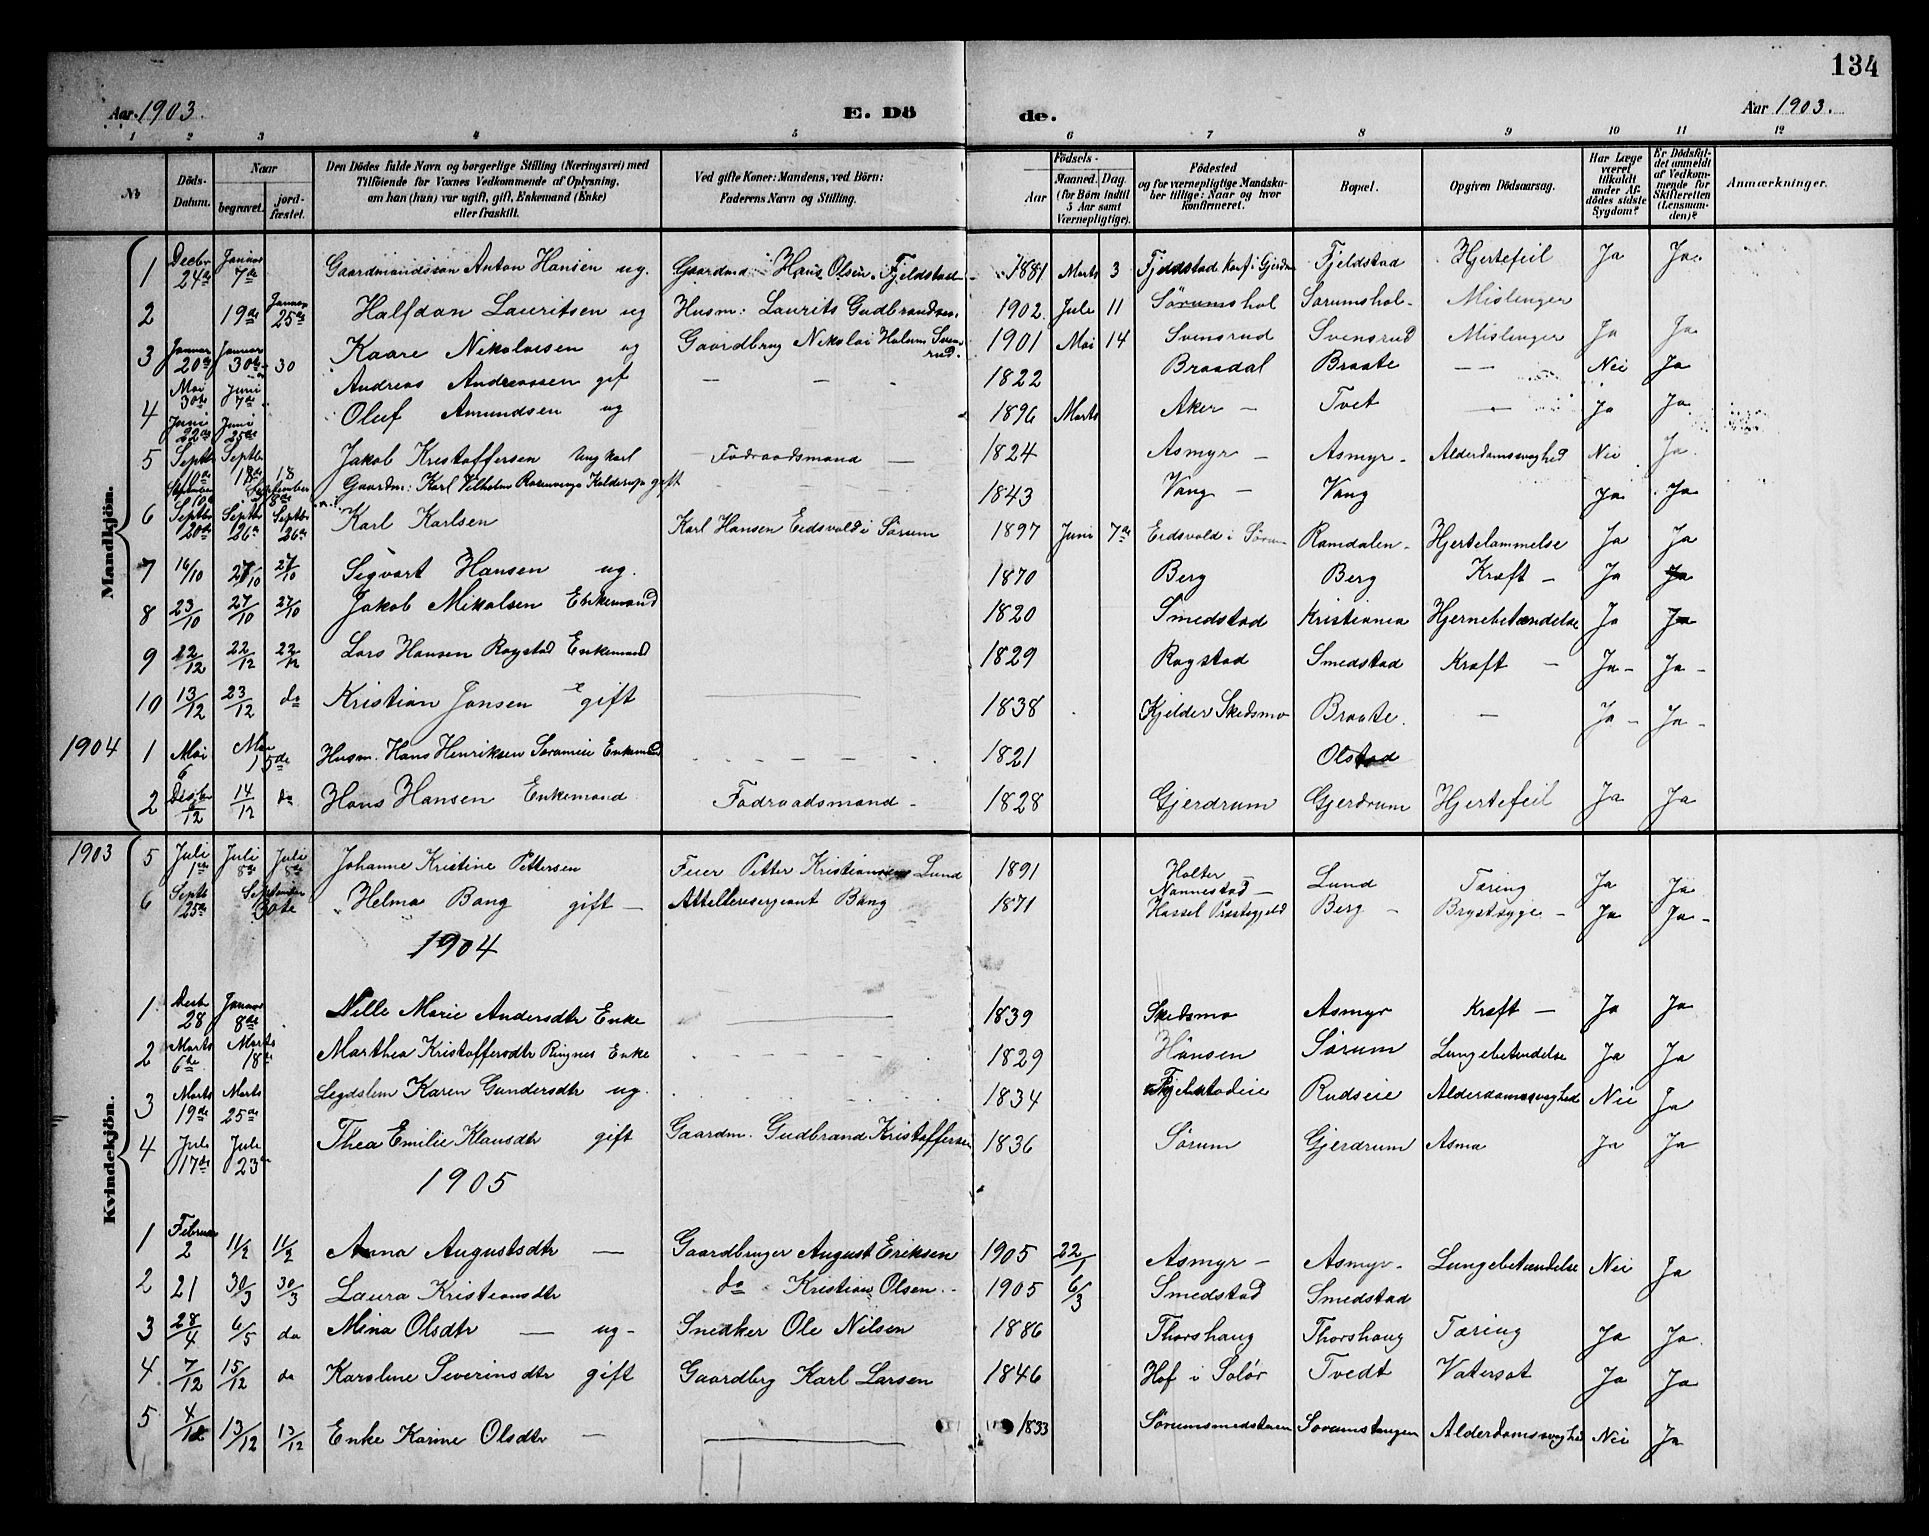 134
Aar 1903. E. Dö de. Aar 1903.
1 2 3 4 5 6 7 8 9 10 11 12
No Döds-Datum. Naar begravet. jordfæstet. Den Dödes fulde Navn og borgerlige Stilling (Næringsvei) med Tilföiende for Voxnes Vedkommende af Oplysning, om han (hun) var ugift, gift, Enkemand (Enke) eller fraskilt. Ved gifte Koner: Mandens, ved Börn: Faderens Navn og Stilling. Födsels- Aar Maaned. Dag. (for Börn indtil 5 Aar samt Værnepligtige). Födested og for værnepligtige Mandskaber tillige: Naar og hvor konfirmeret. Bopæl. Opgiven Dödsaarsag. Har Læge været tilkaldt under Afdödes sidste Sygdom? Er Dödsfaldet anmeldt af Vedkommende for Skifteretten (Lensmanden)? Anmærkninger.
Mandkjön.
1 Decbr 24de Januar 7de Gaardmandssön Anton Hansen ug. Gaardmd Hans Olsen Fjeldstad 1881 Marts 3 Fjeldstad Konf. i Gjerdrum Fjeldstad Hjertefeil Ja Ja
2 19de Januar 25de Halfdan Lauritsen ug Husm: Laurits Gudbrandsen 1902 Jule 11 Sörumshol Sörumshol Mislinger
3 Januar 20de Januar 30te 30 Kaare Nikolaisen ug Gaardbrug Nikolai Holum Svensrud. 1901 Mai 14 Svensrud Svensrud Mislinger Ja Ja
Mai 30te Juni 7de Andreas Andreassen gif — — - 1822 Braadal Braate — Nei Ja
4 Juni 22de Juni 25de Oluf Amundsen ug 1896 Marts Aker — Tvet — Ja Ja
5 Septbr 10de Septbr 18de 18 Jakob Kristoffersen Ungkarl Födraadsmand — 1824 Asmyr — Asmyr - Alderdomssvaghed Nei Ja
September 10de September 18de Gaardm: Karl Vilhelm Rosenvinge Kolderup gift 1843 Vang — Vang Ja Ja
6 Septbr 20de Septbr 26de Septbr 26de Karl Karlsen Karl Hansen Eidsvold i Sörum 1897 Juni 7de Eidsvold i Sörum Ramdalen - Hjertelammelse Ja Ja
7 16/10 27/10 27/10 Sigvart Hansen ug. 1870 Berg Berg Kræft — Ja Ja
8 23/10 27/10 27/10 Jakob Mikalsen Enkemand 1820 Smedstad Kristiania Hjernebetændelse Ja Ja
9 22/12 22/12 22/12 Lars Hansen Rogstad Enkemand 1829 Rogstad Smedstad Kræft — Ja - Ja -
10 13/12 23/12 do Kristian Jansen gift — 1838 Kjelder Skedsmo Braate. — Ja - Ja -
1904 1 Mai 6 Mai 15de Husm. Hans Henriksen Enkemand 1821 Olstad
2 Decbr 6/12 14/12 do Hans Hansen Enkemand Födraadsmand - 1828 Gjerdrum Gjerdrum Hjertefeil Ja Ja
Kvindekjön.
1903 5 Juli 1ste Juli 8de Juli 8de Johanne Kristine Pettersen Feier Petter Kristiansen Lund 1891 Holter Nannestad — Lund Tæring Ja Ja
6 Septb 25de September 30te Helma Bang gift — Attellerisergeant Bang 1871 Hassel Præstegjeld Berg — Brystsyge — Ja Ja -
1904
1 Desb 28 Januar 8de Nille Marie Andersdtr Enke — 1839 Skedsmo Asmyr Kræft — Ja Ja
2 Marts 6te Marts 18de Marthea Kristoffersdtr Ringnes Enke 1829 Hönsen Sörum Lungebetændelse Ja Ja
3 Marts 19de Marts 25de Legdslem Karen Gundersdtr ug. 1834 Fjeldstadeie Rudseie Alderdomssvaghed Nei Ja
4 Juli 17de Juli 23 Thea Emilie Klausdtr gift Gaardm. Gudbrand Kristoffersen 1836 Sörum Gjerdrum Asma Ja Ja
1905
1 Februar 2 11/2 11/2 Anna Augustsdtr — Gaardbruger August Eriksen 1905 22/1 Asmyr - Asmyr - Lungebetændelse Nei Ja
2 21 30/3 30/3 Laura Kristiansdtr do Kristian Olsen 1905 6/3 Smedstad Smedstad
3 28/4 6/5 do Mina Olsdtr — ug - Snedker Ole Nilsen 1886 Thorshaug Thorshaug Tæring Ja Ja
4 7/12 15/12 do Karoline Severinsdtr gift Gaardbrg Karl Larsen 1846 Hof i Solör Tvedt Vatersot Ja Ja
5 4/12 13/12 13/12 Enke Karine Olsdtr — 1833 Sörumsmedstuen Sörumstangen Alderdomssvaghed Nei Ja